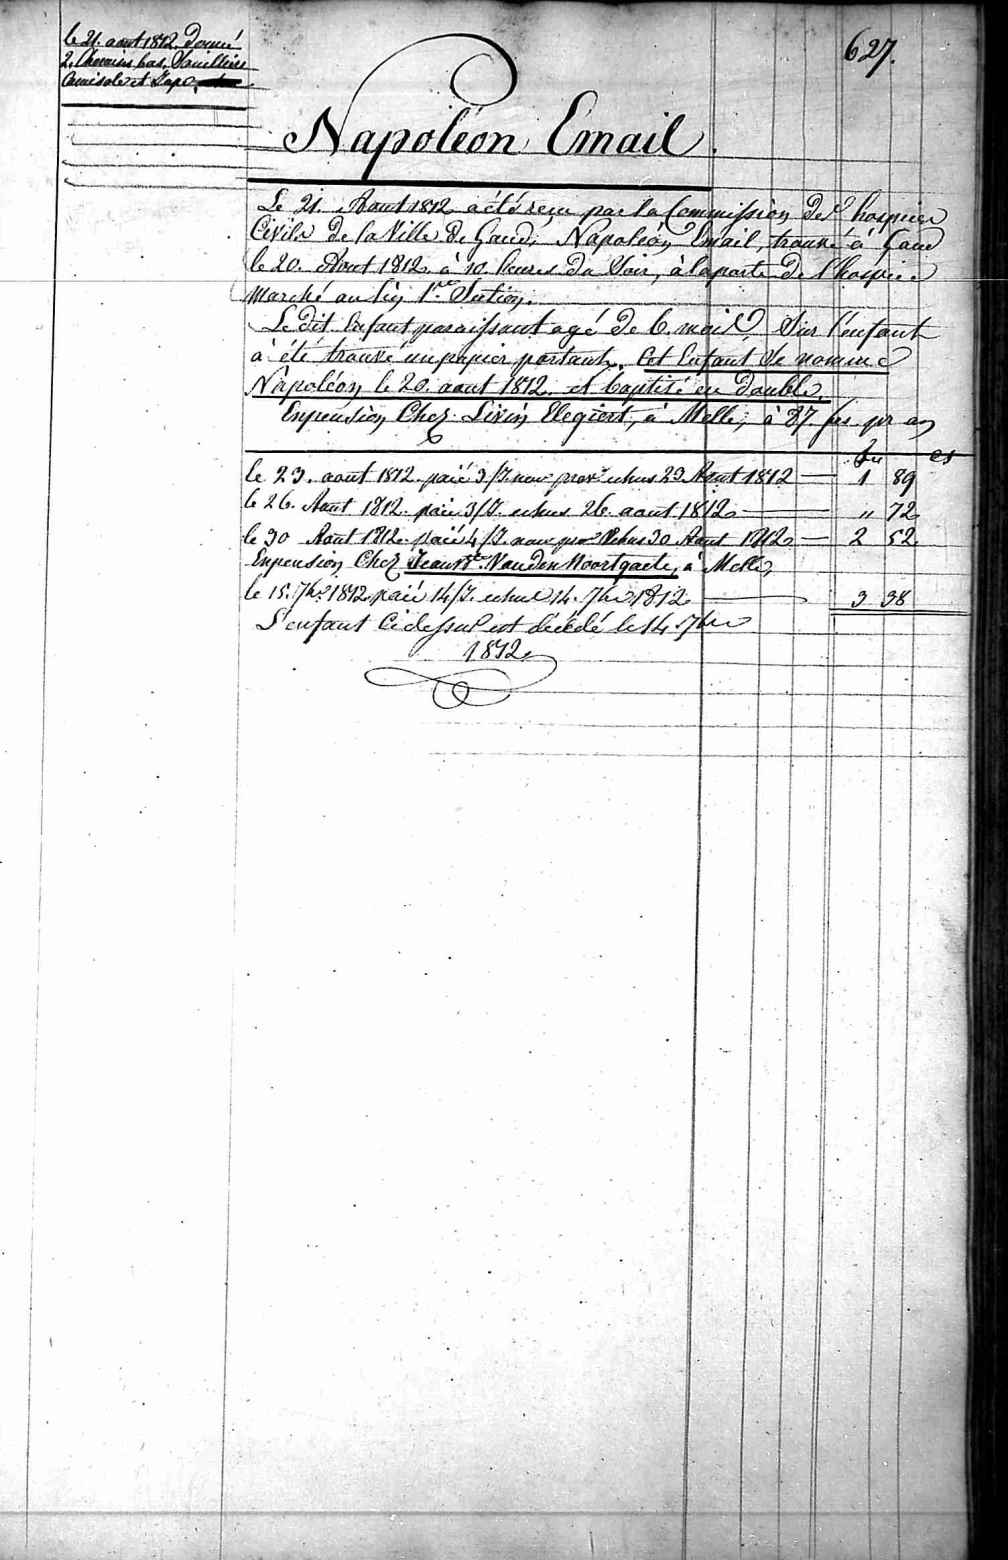 le 21. aout 1812. Donné
2. Chemises, bas,
Camisole et Jupe
627.
Napoléon Email.
Le 21. Aout 1812 a été reçu par la Commission des hospices
Civils de la Ville de Gand, Napoléon Email, trouvé à Gand
le 20. Aout 1812. à 10. heures du Soir, à la porte de l'hospice
Marché au lin 1.re Section.
Le dit Enfant paraissant agé de 6. mois, Sur l'enfant
à été trouvé un papier portant, Cet Enfant Se nomme
Napoléon le 20. aout 1812. et baptisé en double.
En pension Chez Livin Elegiert, à Melle, à 87. frs. pr an
frs cs
le 23. aout 1812. paié 3/J. nour prov.e echus 23 Aout 1812 — 1 89
le 26. Aout 1812. paié 3/J. echus 26. aout 1812 — " 72
le 30 Aout 1812. paié 4/J. nour pro echus 30 Aout 1812 — 2 52.
En pension Chez Jeanne Vanden Noortgaete, à Melle,
le 15. 7bre 1812 paié 14/J. echus 14. 7bre 1812 — 3 38
L'enfant Ci dessus est décédé le 14 7bre
1812.